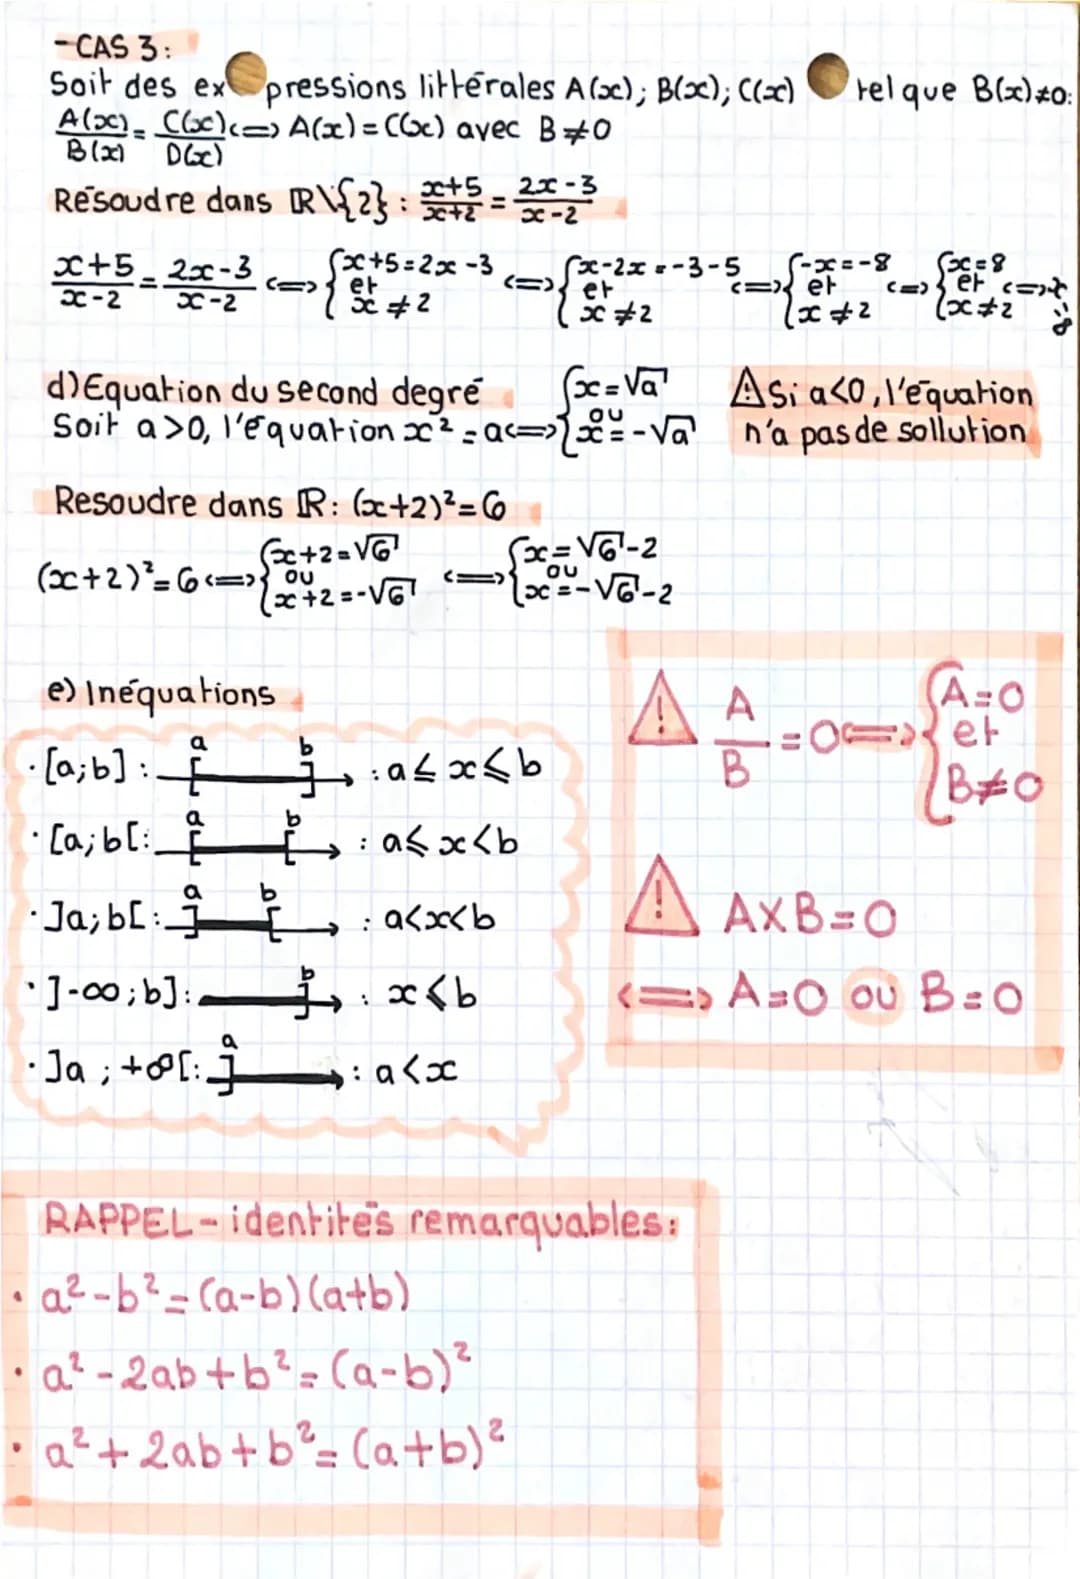 -CAS 3:
Soit des expressions littérales A(x); B(x); C(x) tel que B(x)≠0:
A(x)/B(x) = C(x)/D(x) <=> A(x) = C(x) avec B≠0
Résoudre dans ℝ\{2} : x+5/x+2 = 2x-3/x-2
x+5/x-2 = 2x-3/x-2 <=> {x+5=2x-3 et x≠2 <=> {x-2x=-3-5 et x≠2 <=> {-x=-8 et x≠2 <=> {x=8 et x≠2 <=> x=8
d) Equation du second degré
Soit a>0, l'équation x²=a <=> {x=√a ou x=-√a
⚠ Si a<0, l'équation
n'a pas de sollution
Resoudre dans ℝ: (x+2)²=6
(x+2)²=6 <=> {x+2=√6 ou x+2=-√6 <=> {x=√6-2 ou x=-√6-2
e) Inéquations
· [a;b] : a [ b ] : a⩽x⩽b
· [a;b[ : a [ b [ : a⩽x<b
· ]a;b[ : a ] b [ : a<x<b
· ]-∞;b] : b ] : x⩽b
· ]a;+∞[ : a ] : a<x
⚠ A/B = 0 <=> {A=0 et B≠0
⚠ A×B=0
<=> A=0 ou B=0
RAPPEL - identités remarquables:
· a²-b²=(a-b)(a+b)
· a²-2ab+b²=(a-b)²
· a²+2ab+b²=(a+b)²